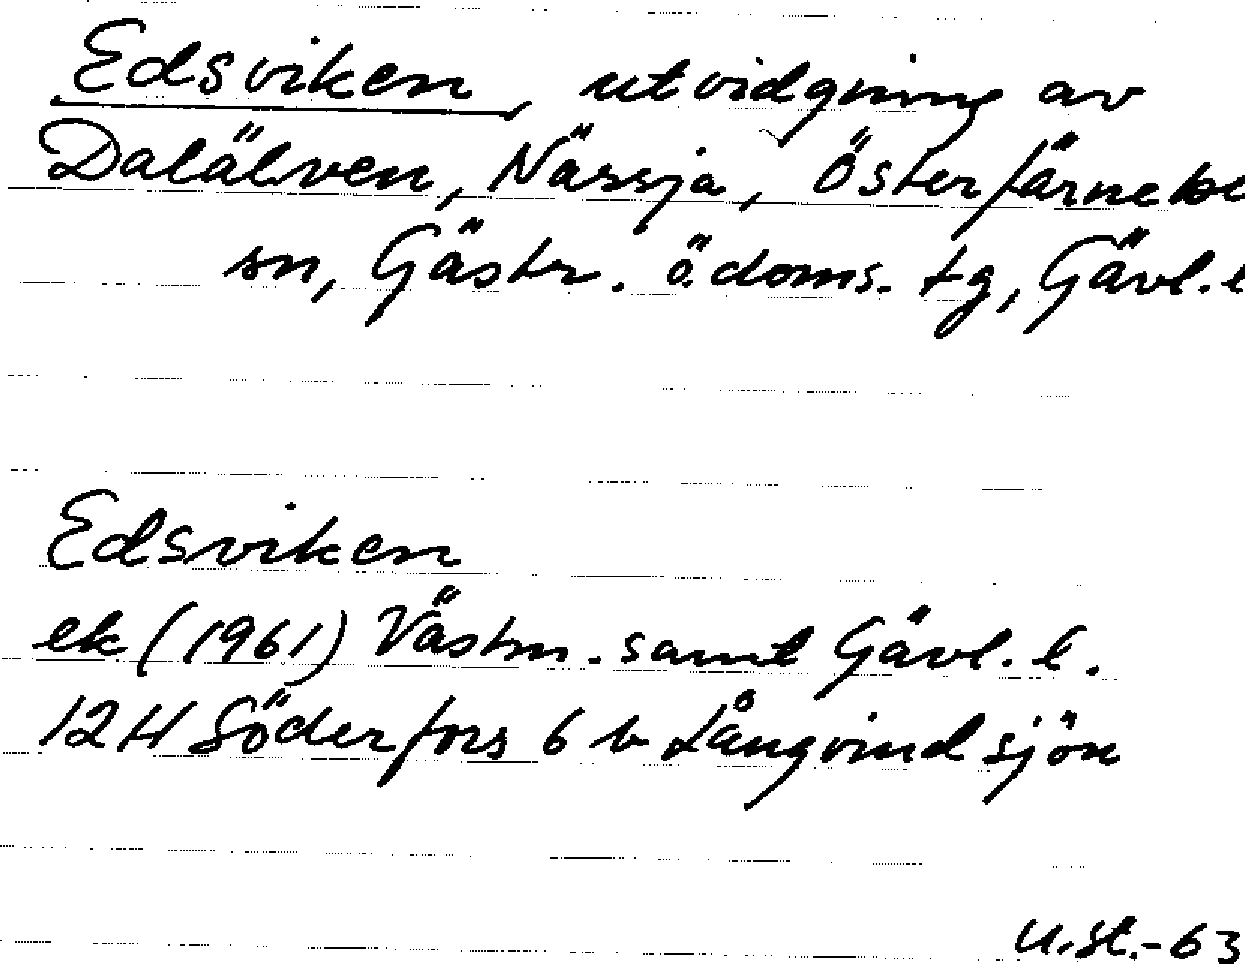 Edsviken, utvidgning av
Dalälven, Nässja, Österfärnebo
sn, Gästr. ö. doms. tg, Gävl. l
Edsviken
ek (1961) Västm. samt Gävl. l.
12H Söderfors 6 b Långvind sjön
U.St.-63